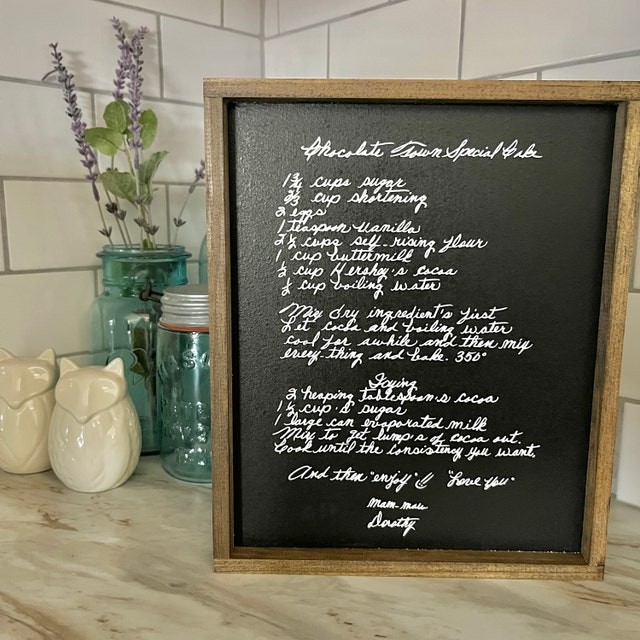 Chocolate Town Special Cake
1¾ cups sugar
⅔ cup shortening
2 eggs
1 teaspoon Vanilla
2½ cups self-rising flour
1 cup buttermilk
½ cup Hershey's cocoa
½ cup boiling water
Mix dry ingredient's first
Let cocoa and boiling water
cool for awhile and then mix
every-thing and bake. 350°
Icying
2 heaping tablespoon's cocoa
1½ cup's sugar
1 large can evaporated milk
Mix to get lump's of cocoa out.
Cook until the consistency you want.
And then "enjoy"!! "Love you"
Mam-maw
Dorothy